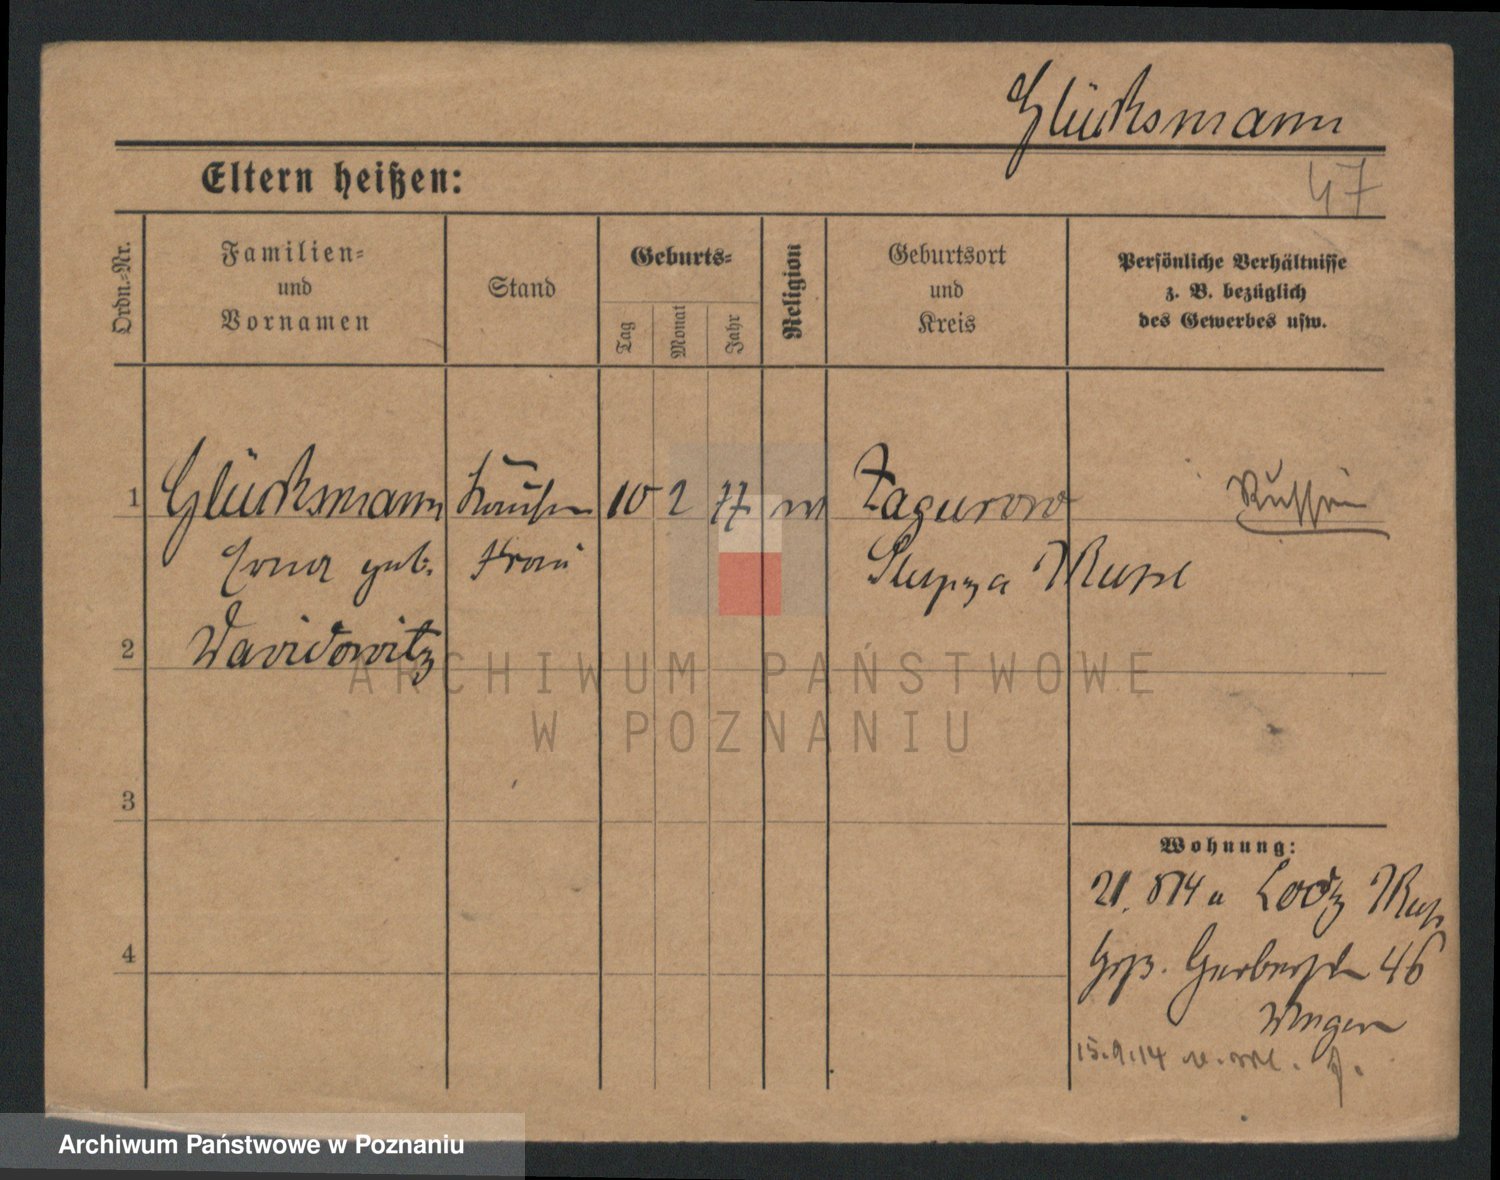 Glücksmann
47
Eltern heißen:
Ordn.-Nr.
Familien-
und
Vornamen
Stand
Geburts-
Tag
Monat
Jahr
Religion
Geburtsort
und
Kreis
Persönliche Verhältnisse
z. B. bezüglich
des Gewerbes usw.
1 Glücksmann Kaufm 10 2 77 m Zagurow Russin
Erna geb. Frau Slupza Russl
2 Davidowitz
ARCHIWUM PAŃSTWOWE
W POZNANIU
3
4
Wohnung:
21. 8 14 a Lodz Russ
Gerberstr 46
15.9.14
Archiwum Państwowe w Poznaniu